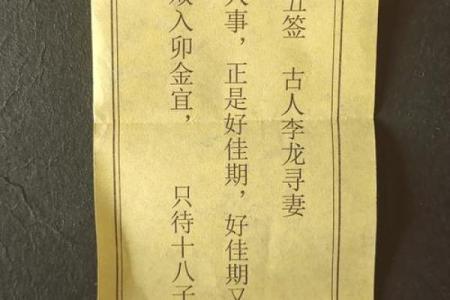 五签 古人李龙寻妻
大事，正是好佳期，好佳期又
入卯金宜， 只待十八子